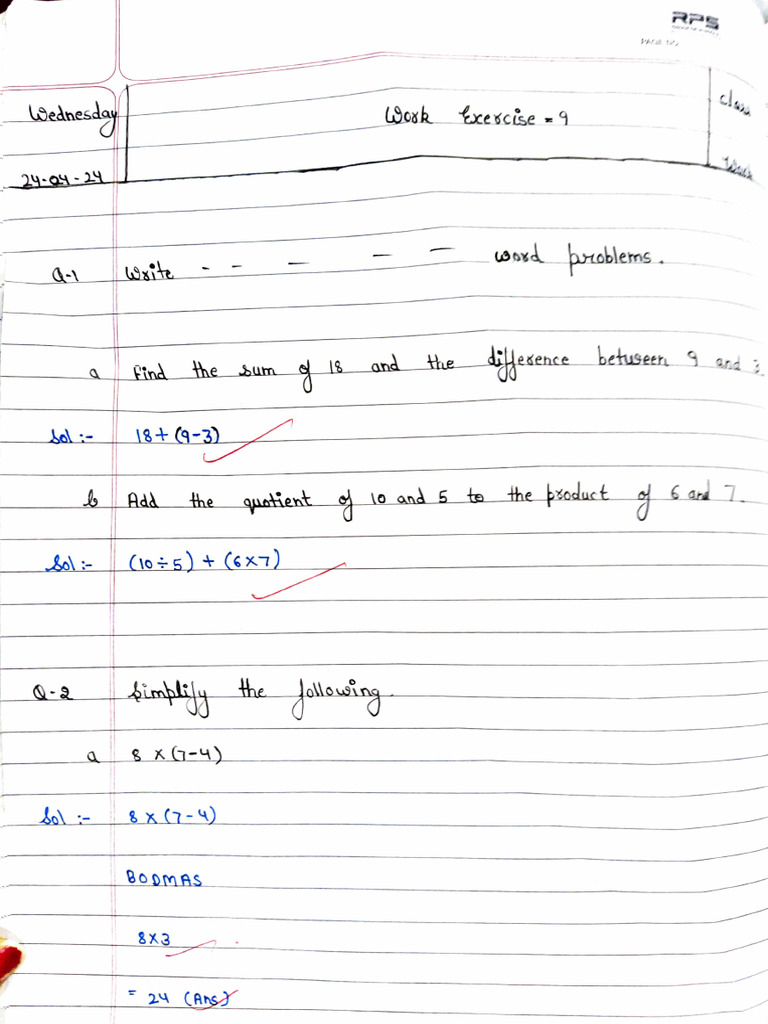 RPS
PAGE NO.
Wednesday
Work Exercise = 9
Class
Work
24-04-24
Q-1 Write - - - - - word problems.
a Find the sum of 18 and the difference between 9 and 3.
Sol :- 18 + (9-3)
b Add the quotient of 10 and 5 to the product of 6 and 7.
Sol :- (10 ÷ 5) + (6 × 7)
Q-2 Simplify the following.
a 8 × (7-4)
Sol :- 8 × (7-4)
BODMAS
8×3
= 24 (Ans)